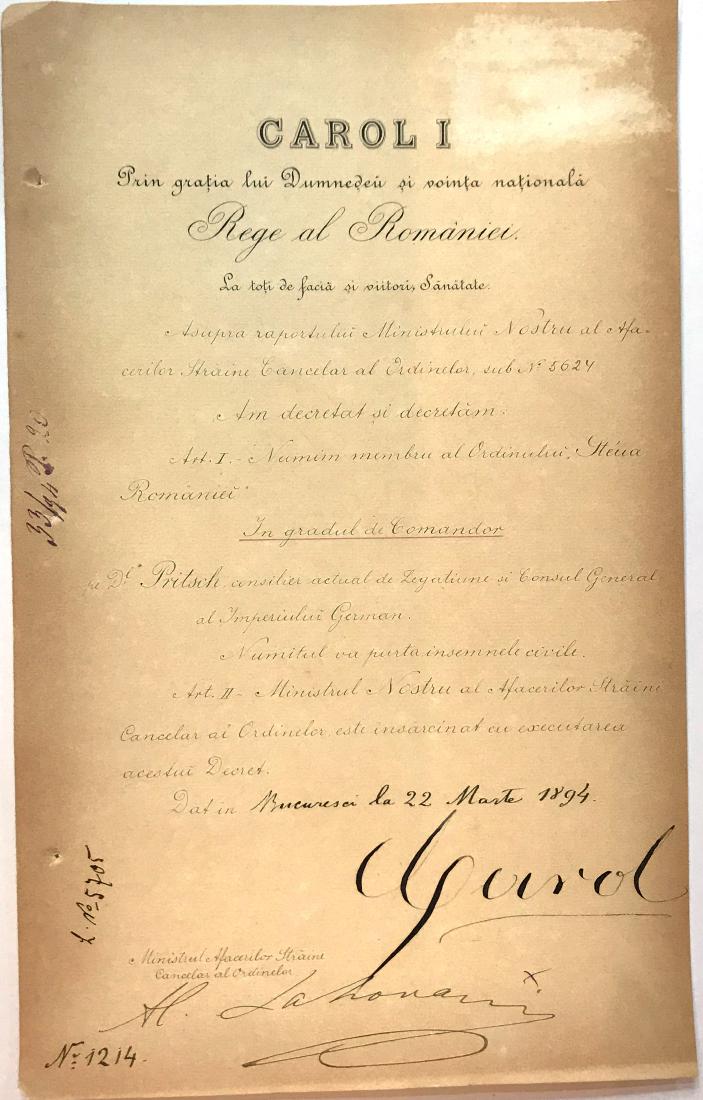 CAROL I
Prin grația lui Dumnedeŭ și voința națională
Rege al României.
La toți de faciă și viitori, Sănătate.
Asupra raportuluĭ Ministruluĭ Nostru al Afa-
cerilor Străine Cancelar al Ordinelor, sub Nº 5624
Am decretat și decretăm:
Art. I.- Numim membru al Ordinuluĭ, "Stéua
României"
In gradul de Comandor
pe Dl. Pritsch, consilier actual de Legatiune si Consul General
al Imperiuluĭ German.
Numitul va purta insemnele civile.
Art. II- Ministrul Nostru al Afacerilor Străine
Cancelar al Ordinelor, este însărcinat cu executarea
acestui Decret.
Dat in Bucuresci la 22 Marte 1894.
Carol
Ministrul Afacerilor Străine
Cancelar al Ordinelor
Al. Lahovari
x
Nr. 1214-
L. Nº 5705
33/94 P. 20